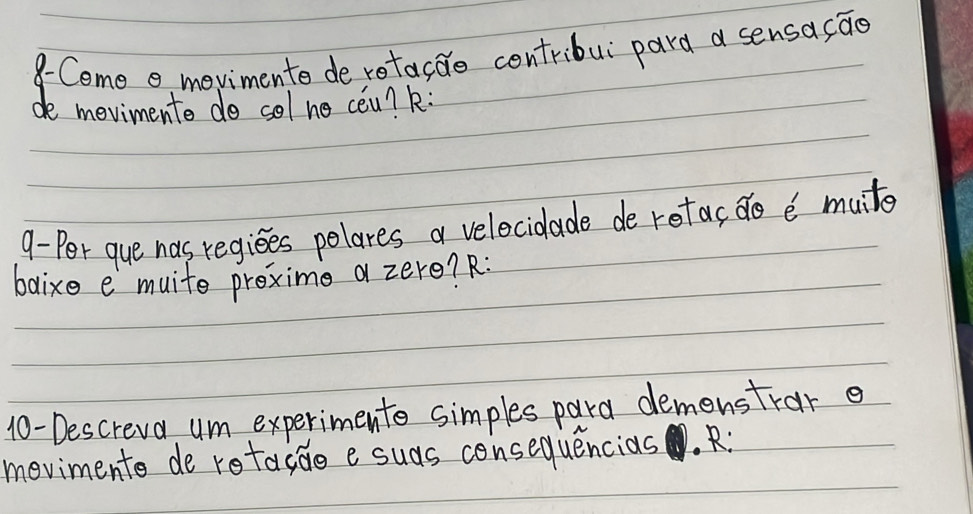 8-Como o movimento de rotação contribui para a sensação
de movimento do sol no céu? R:
9-Por que nas regiões polares a velocidade de rotação é muito
baixo e muito próximo a zero? R:
10-Descreva um experimento simples para demonstrar o
movimento de rotação e suas consequências. R: